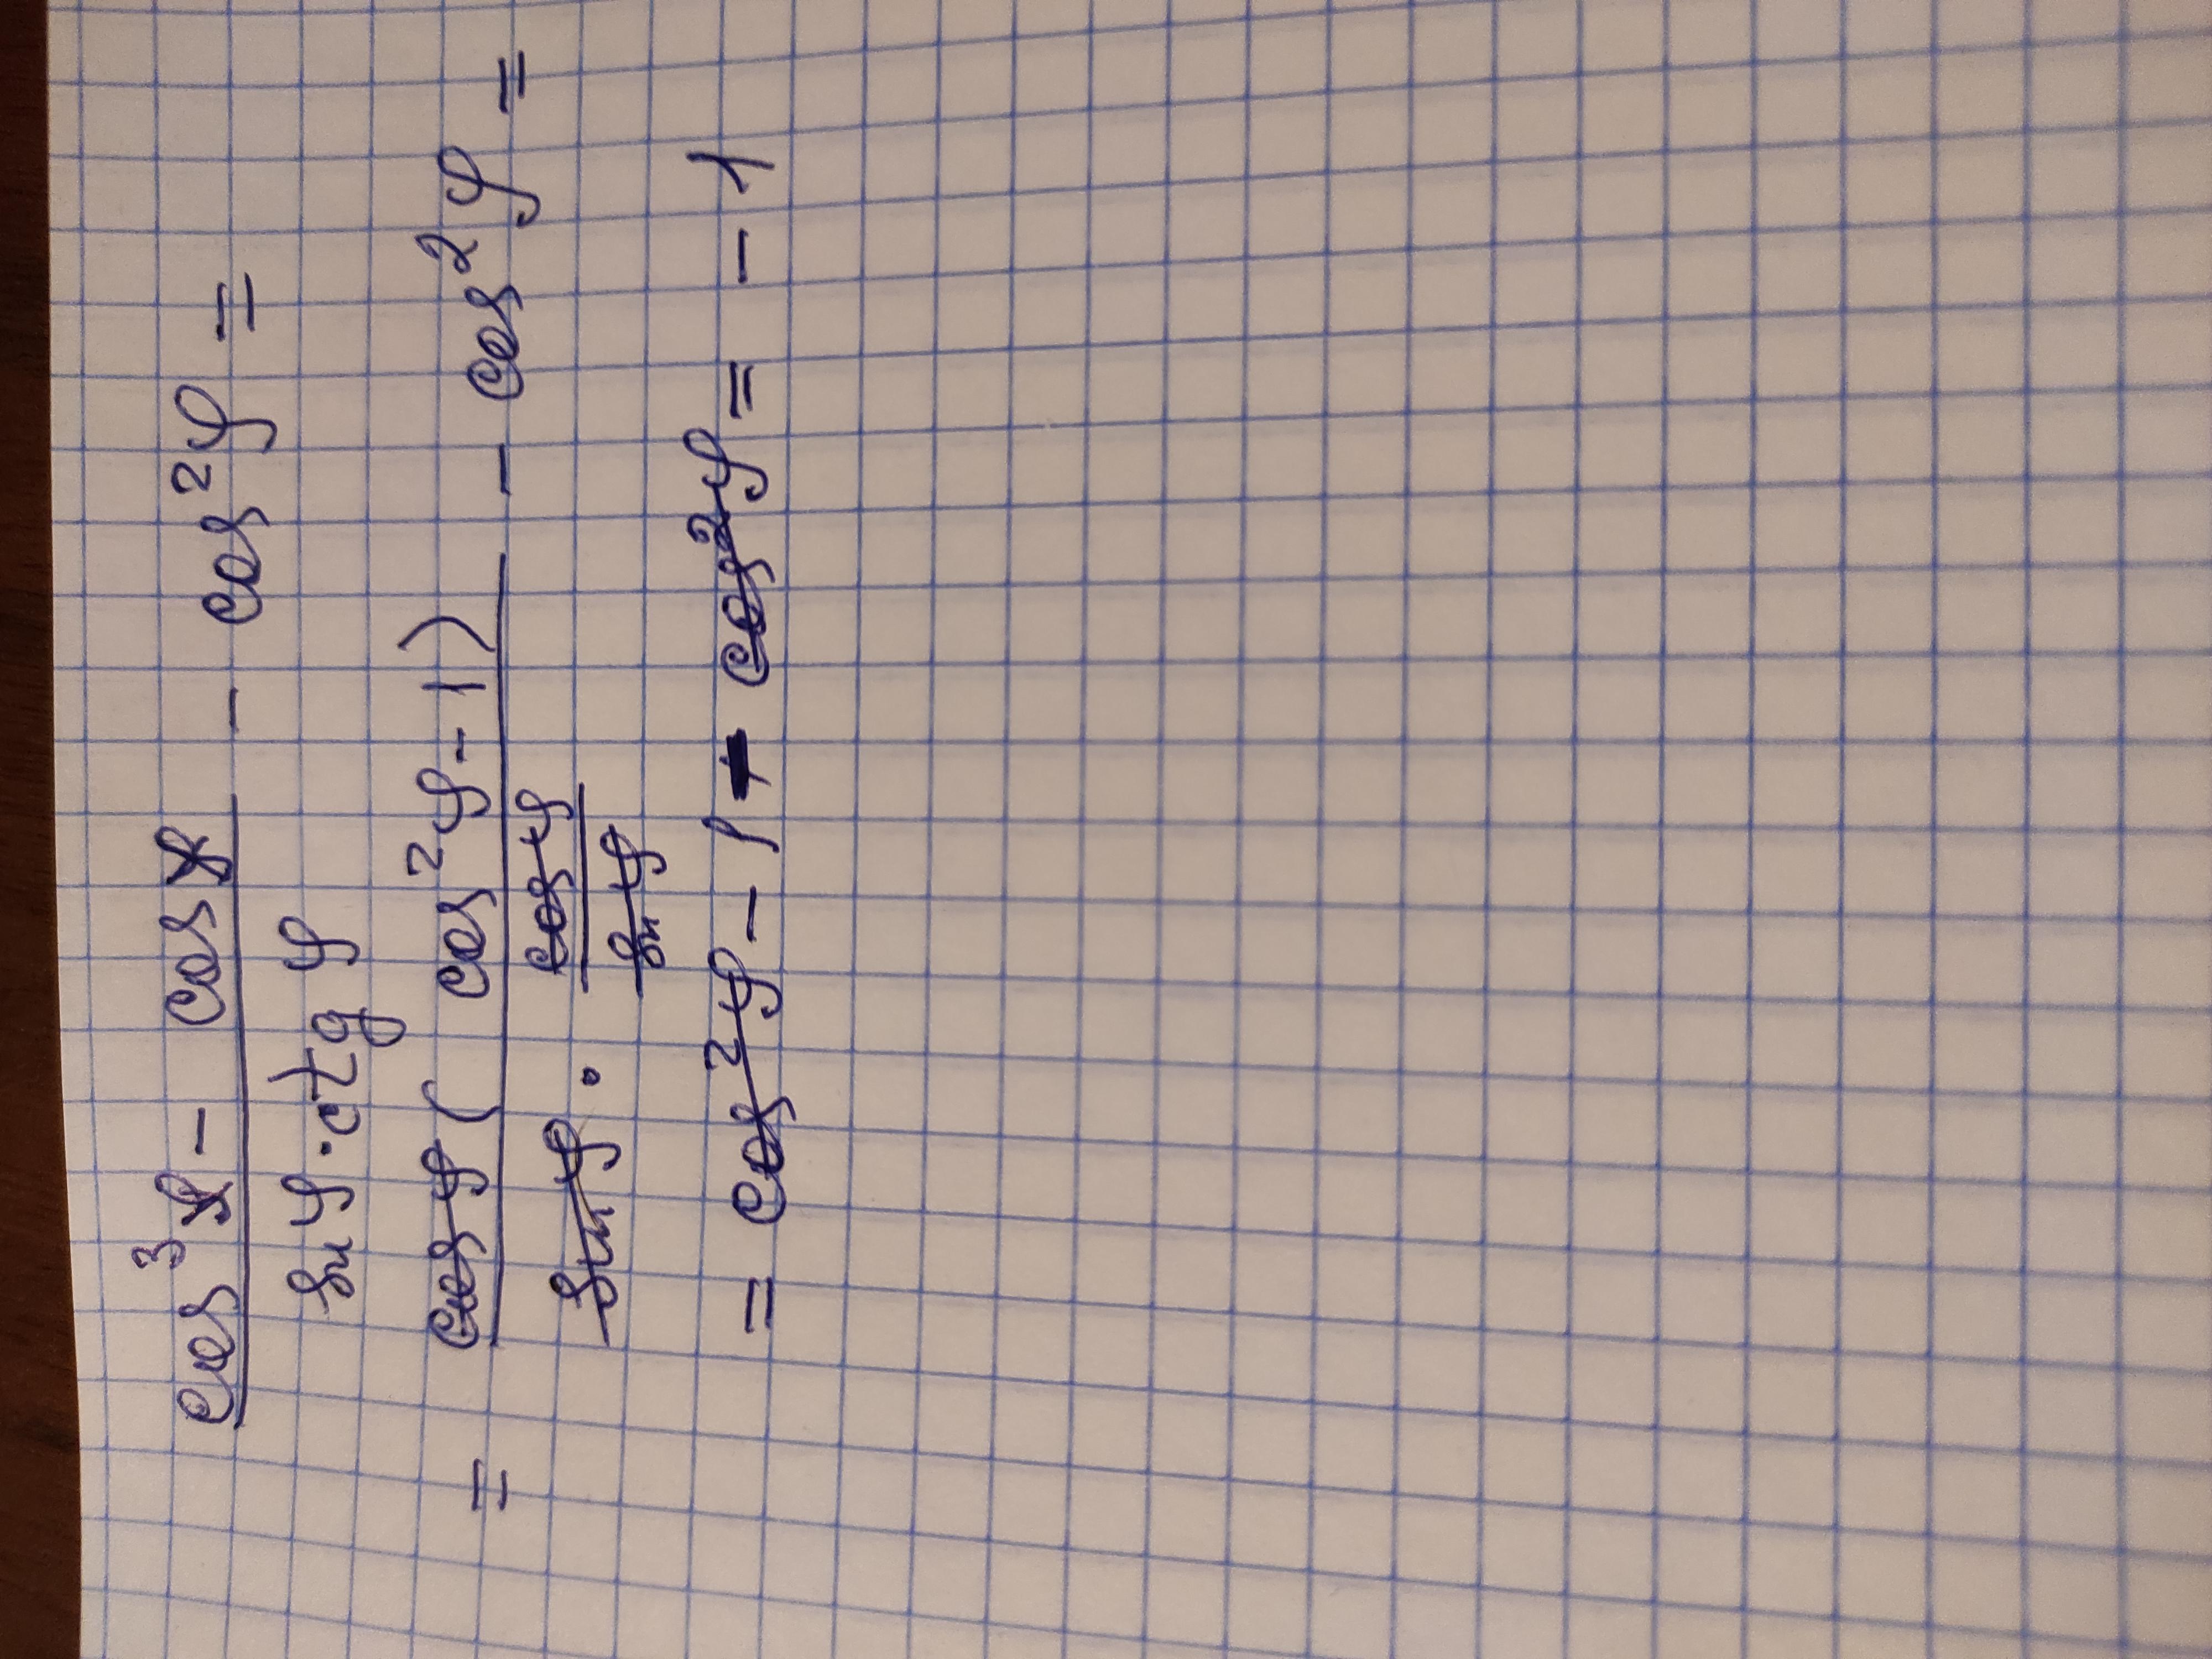 cos³φ - cosφ / sinφ·ctgφ - cos²φ =
= cosφ(cos²φ-1) / sinφ · cosφ/sinφ - cos²φ =
= cos²φ - 1 - cos²φ = - 1